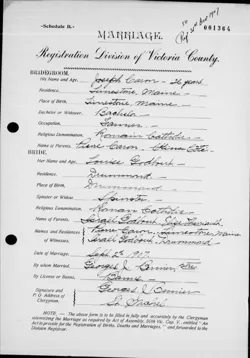 —Schedule B.—
001364
MARRIAGE.
Registration Division of Victoria County.
BRIDEGROOM.
His Name and Age, Joseph Caron - 26 years
Residence, Limestone Maine -
Place of Birth, Limestone, Maine -
Bachelor or Widower, Bachelor
Occupation, Farmer -
Religious Denomination, Romain Catholic -
Name of Parents, Caron -
BRIDE.
Her Name and Age, Louise Godbout -
Residence, Drummond -
Place of Birth, Drummond -
Spinster or Widow, Spinster -
Religious Denomination, Roman Catholic -
Name of Parents,
Names and Residences Caron, Limestone, Maine
Godbout, Drummond
Date of Marriage, Sept. 1917 -
By whom Married, Georges
By License or Banns, Banns -
Signature and
P. O. Address of
Clergyman,
Georges
NOTE.— The above form is to be filled in fully and accurately by the Clergyman
solemnizing the Marriage as required by Act of Assembly, Cap. V., entitled "An
Act to provide for the Registration of Births, Deaths and Marriages," and forwarded to the
Division Registrar.